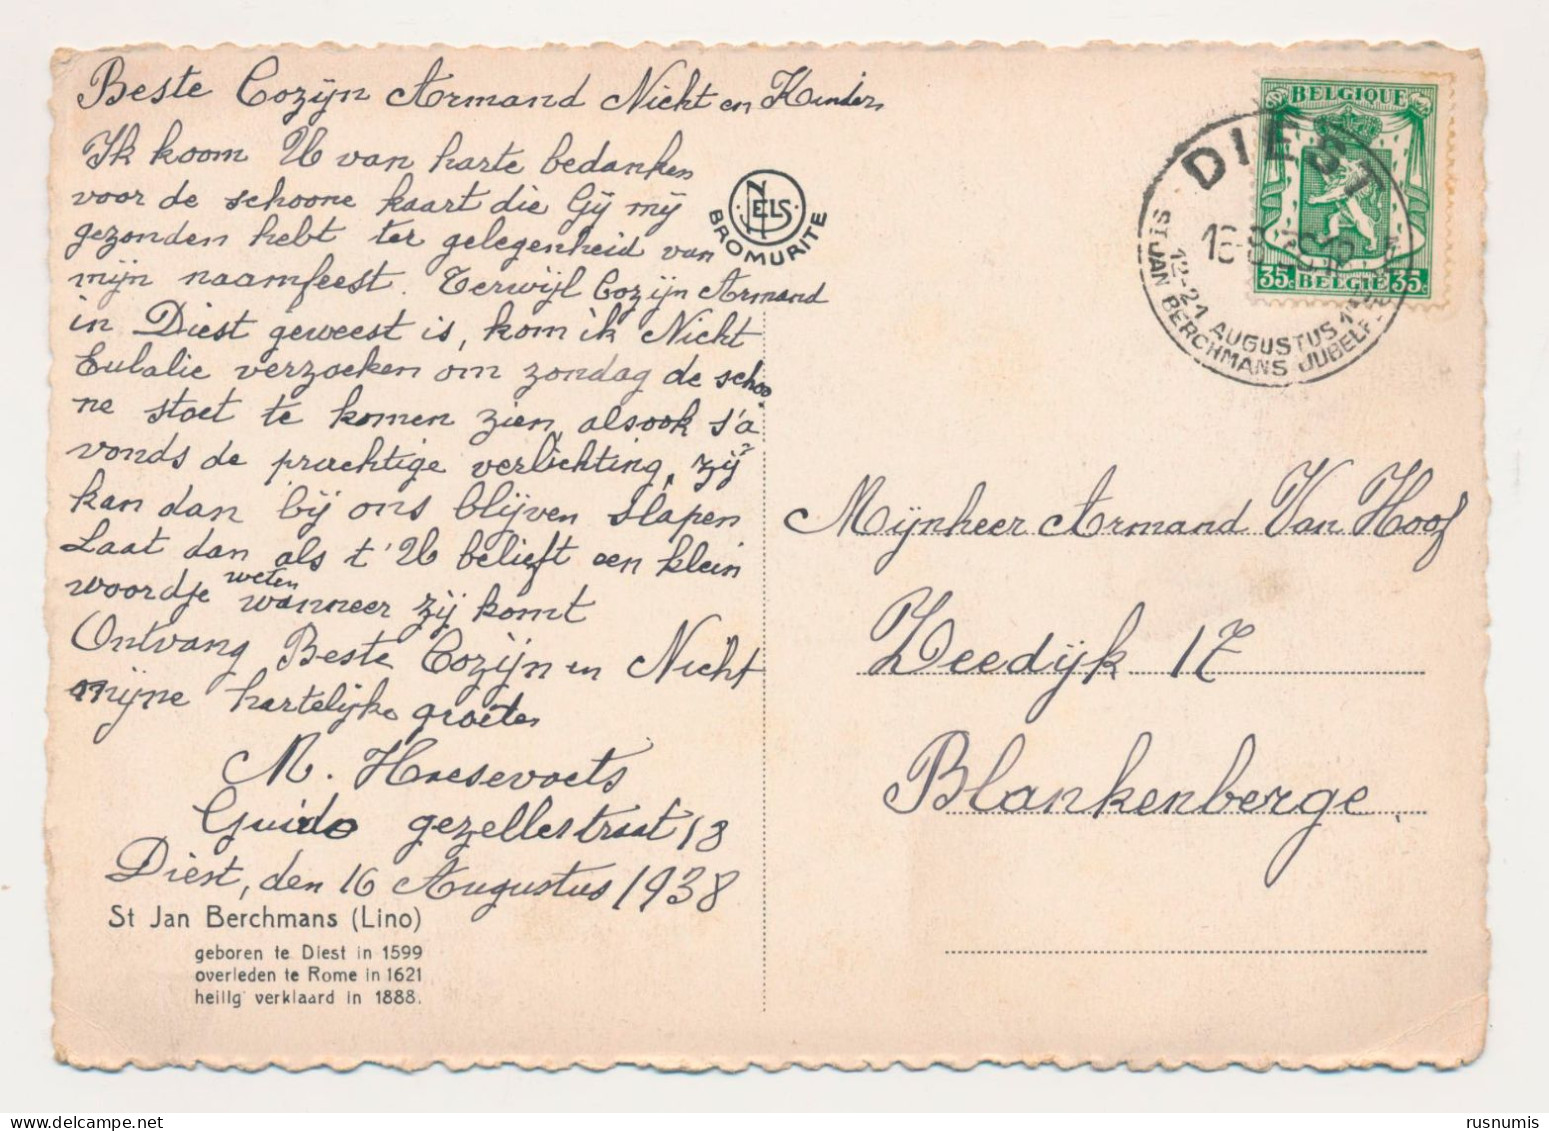 Beste Cozijn Armand Nicht en Kinders
Ik koom U van harte bedanken
voor de schoone kaart die Gij mij
gezonden hebt ter gelegenheid van
mijn naamfeest. Terwijl Cozijn Armand
in Diest geweest is, kom ik Nicht
Eulalie verzoeken om zondag de schoo
ne stoet te komen zien, alsook s'a
vonds de prachtige verlichting, zij
kan dan bij ons blijven slapen
Laat dan als t'U belieft een klein
woordje weten wanneer zij komt
Ontvang Beste Cozijn en Nicht
mijne hartelijke groeten
M. Haesevoets
Guido gezellestraat 18
Diest, den 16 Augustus 1938
St Jan Berchmans (Lino)
geboren te Diest in 1599
overleden te Rome in 1621
heilig verklaard in 1888.
NELS
BROMURITE
BELGIQUE
35c BELGIE 35c
DIEST
12-21 AUGUSTUS
ST JAN BERCHMANS JUBELF
Mijnheer Armand Van Hoof
Zeedijk 17
Blankenberge
rusnumis